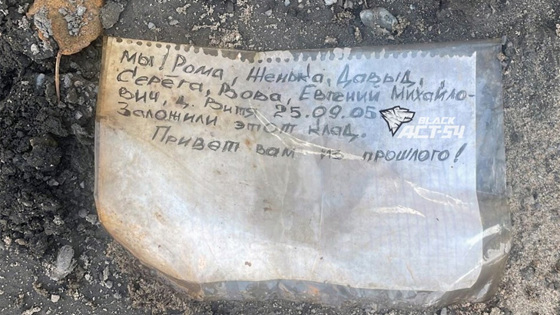 Мы! Рома, Женька, Давыд,
Серёга, Вова, Евгений Михайло-
вич, д. Витя 25.09.05
Заложили этот клад.
Привет вам из прошлого!
BLACK
ACT-54